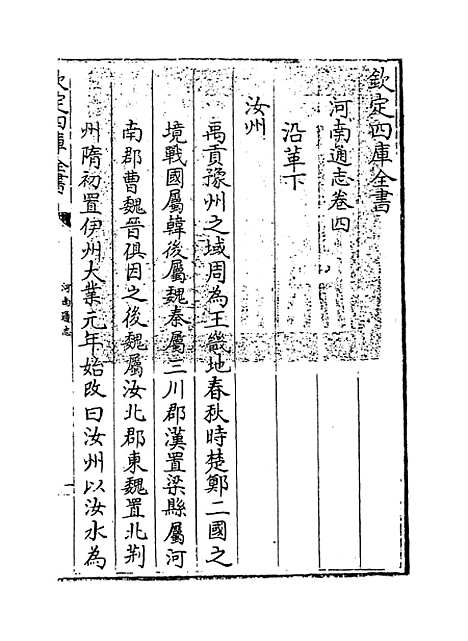 欽定四庫全書
河南通志卷四
沿革下
汝州
禹貢豫州之域周為王畿地春秋時楚鄭二國之
境戰國屬韓後屬魏秦屬三川郡漢置梁縣屬河
南郡曹魏晉俱因之後魏屬汝北郡東魏置北荆
州隋初置伊州大業元年始改曰汝州以汝水為
欽定四庫全書
河南通志
一